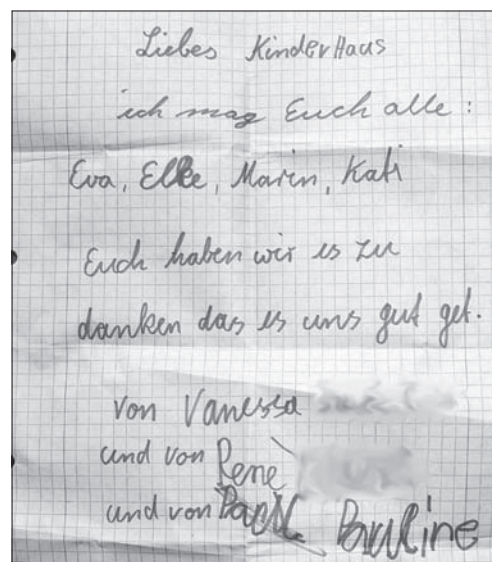 Liebes KinderHaus
ich mag Euch alle:
Eva, Elke, Maren, Kati
Euch haben wir es zu
danken das es uns gut get.
von Vanessa
und von Rene
und von Pauline